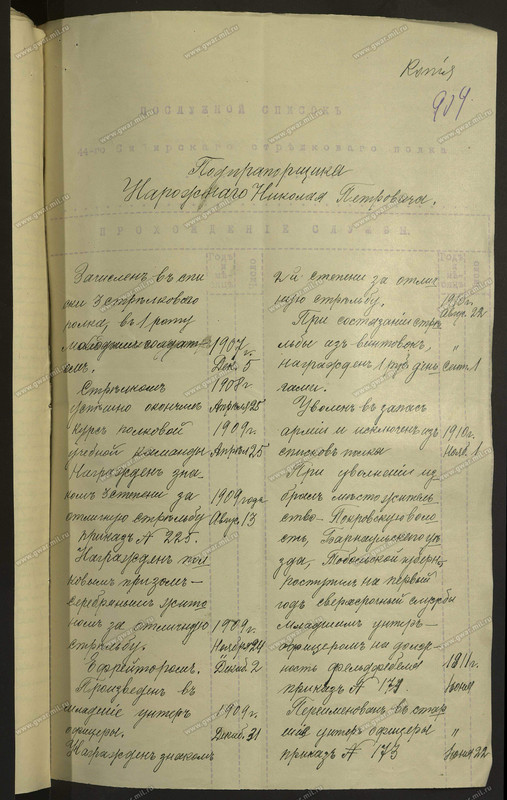 Копія
909.
ПОСЛУЖНОЙ СПИСОКЪ
44-го Сибирскаго стрѣлковаго полка
Подпрапорщика
Нарожнаго Николая Петровича.
ПРОХОЖДЕНІЕ СЛУЖБЫ.
Зачисленъ въ спи
ски 3 стрѣлковаго
полка, въ 1 роту
молодымъ солдат 1907 г.
омъ. Дек. 5
Стрѣлкомъ 1908 г
успѣшно окончилъ Апрѣля 25
курсъ полковой 1909 г
учебной команды Апрѣля 25
Награжденъ зна-
комъ 3 степени за 1909 года
отличную стрѣльбу Авгус. 13
приказъ № 225.
Награжденъ пол-
ковымъ призомъ –
серебряными
за отличную 1909 г.
стрѣльбу. Ноября 24
Ефрейторомъ. Декаб. 2
Произведенъ въ
младшіе унтеръ 1909 г.
офицеры. Декаб. 31
Награжденъ знакомъ
2й степени за отлич
ную стрѣльбу. 1910 г.
Авгус. 22
При состязаніи стрѣ
льбы изъ винтовокъ, "
награжденъ 1 руб. день Сент. 1
гами.
Уволенъ въ запасъ
арміи и исключенъ изъ 1910 г.
списковъ полка Нояб. 1
При увольненіи из
бралъ мѣстожитель
ство – Покровскую воло
сть, Барнаульскаго уѣ
зда, Тобольской губерн.,
поступилъ на первый
годъ сверхсрочной службы
младшимъ унтеръ –
офицеромъ на долж-
ность фельдфебеля 1911 г.
приказъ № 172 Іюня
Переименованъ въ стар
шіе унтеръ офицеры "
приказъ № 173 Іюня 22
www.gwar.mil.ru